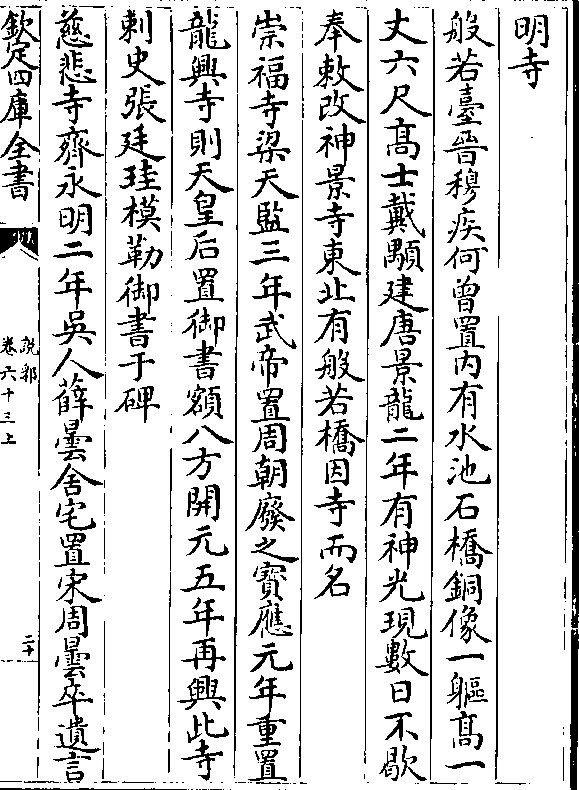 明寺
般若臺晉穆疾何曾置内有水池石橋銅像一軀髙一
丈六尺髙士戴顒建唐景龍二年有神光現數日不歇
奉敕改神景寺東北有般若橋因寺而名
崇福寺梁天監三年武帝置周朝廢之寳應元年重置
龍興寺則天皇后置御書額八方開元五年再興此寺
刺史張廷珪模勒御書于碑
慈悲寺齊永明二年吳人薛曇舍宅置宋周曇卒遺言
欽定四庫全書
說郛
卷六十三上
二十